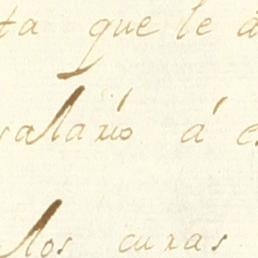 ta que le a
salario á e
los curas